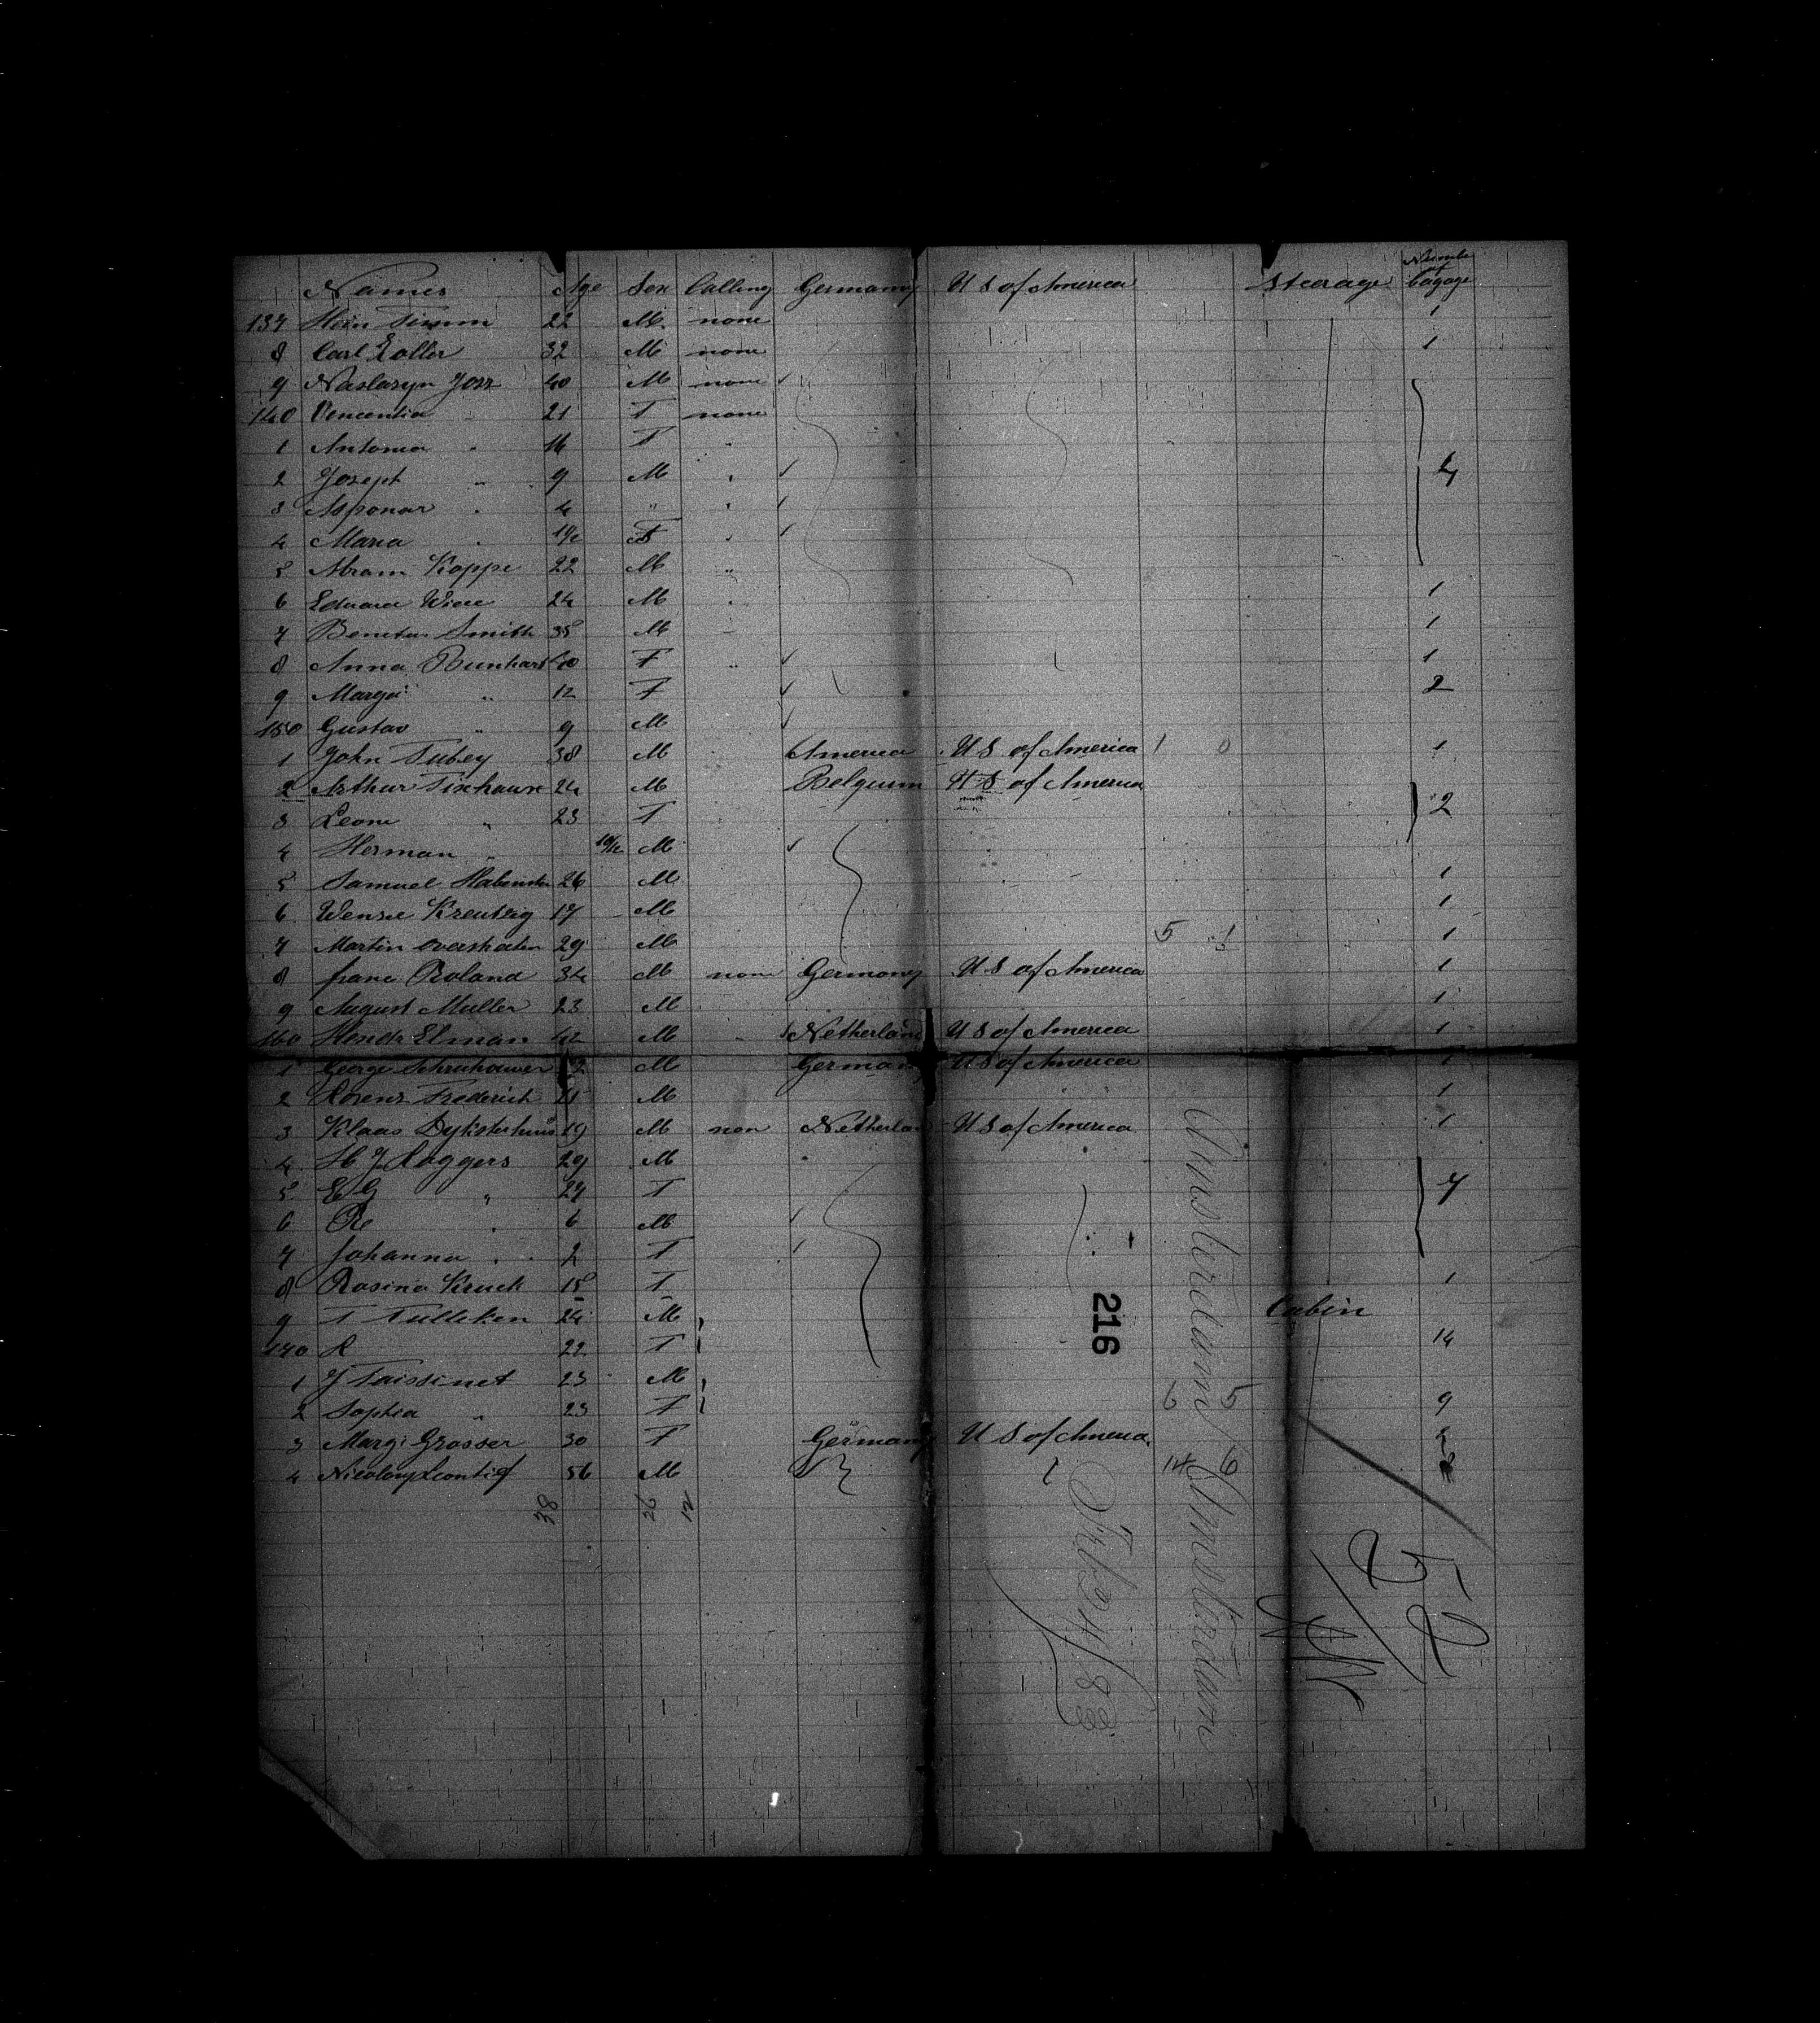 Names Age Sex Calling Germany U S of America Steerage Number of bagage
137 Hein Timm 22 M. none 1
8 Carl Zoller 32 M none 1
9 Naslaryn Josz 40 M none
140 Vencentia " 21 F none
1 Antonia " 16 F "
2 Joseph " 9 M " 4
3 " 4 " "
4 Maria " F "
5 Abram Koppe 22 M "
6 Eduard Wiese 24 M " 1
7 Smith 35 M 1
8 Anna 40 F " 1
9 Margt " 12 F 2
150 Gustav " 9 M
1 John Tubey 38 M America U S of America 1 0 1
2 Arthur 24 M Belgium U S of America
3 Leonie " 23 F 2
4 Herman " 10/12 M
5 Samuel 26 M 1
6 Kreutzig 17 M 1
7 Martin 29 M 5 1 1
8 Roland 34 M none Germany U S of America 1
9 August Muller 23 M 1
160 Hendr Elman 42 M " Netherland U S of America 1
1 George M Germany U S of America 1
2 Lorenz Frederich 21 M 1
3 Klaas Dyksterhuis 19 M non Netherland U S of America 1
4 H J Roggers 29 M
5 E G " 27 F 7
6 Re " 6 M
7 Johanna " 2 F
8 Rosina Kruck 18 F 1
9 T Tulleken 24 M Cabin
170 R 22 F 14
1 J Taissinet 23 M
2 Sophia " 23 F 6 5 9
3 Margt Grosser 30 F Germany U S of America
4 Nicolay Leontief 56 M 14 6
38 26 12
216
Amsterdam
Amsterdam
52